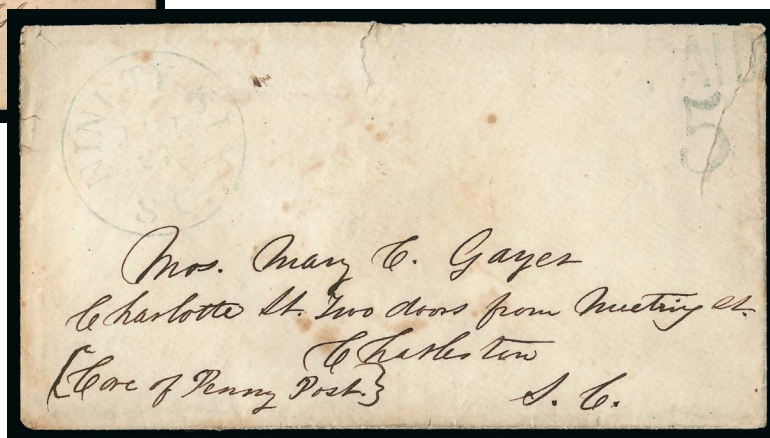 NINETY SIX
S.C.
PAID
5
Mrs. Mary C. Gayer
Charlotte St. Two doors from Meeting St.
Charleston
{Care of Penny Post.}
S. C.